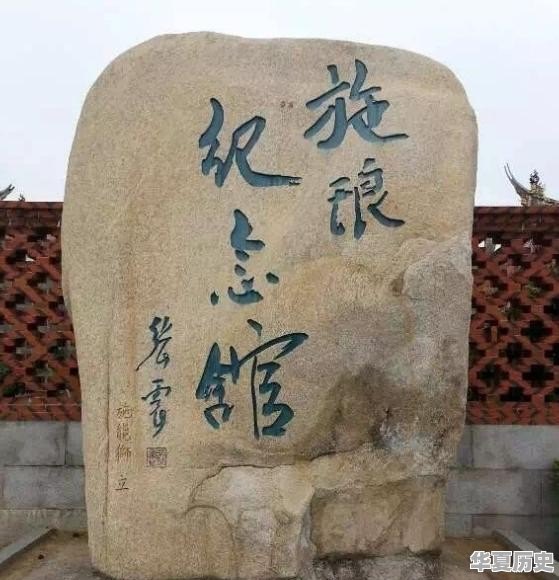 施琅
纪念馆
施能狮 立
华夏历史